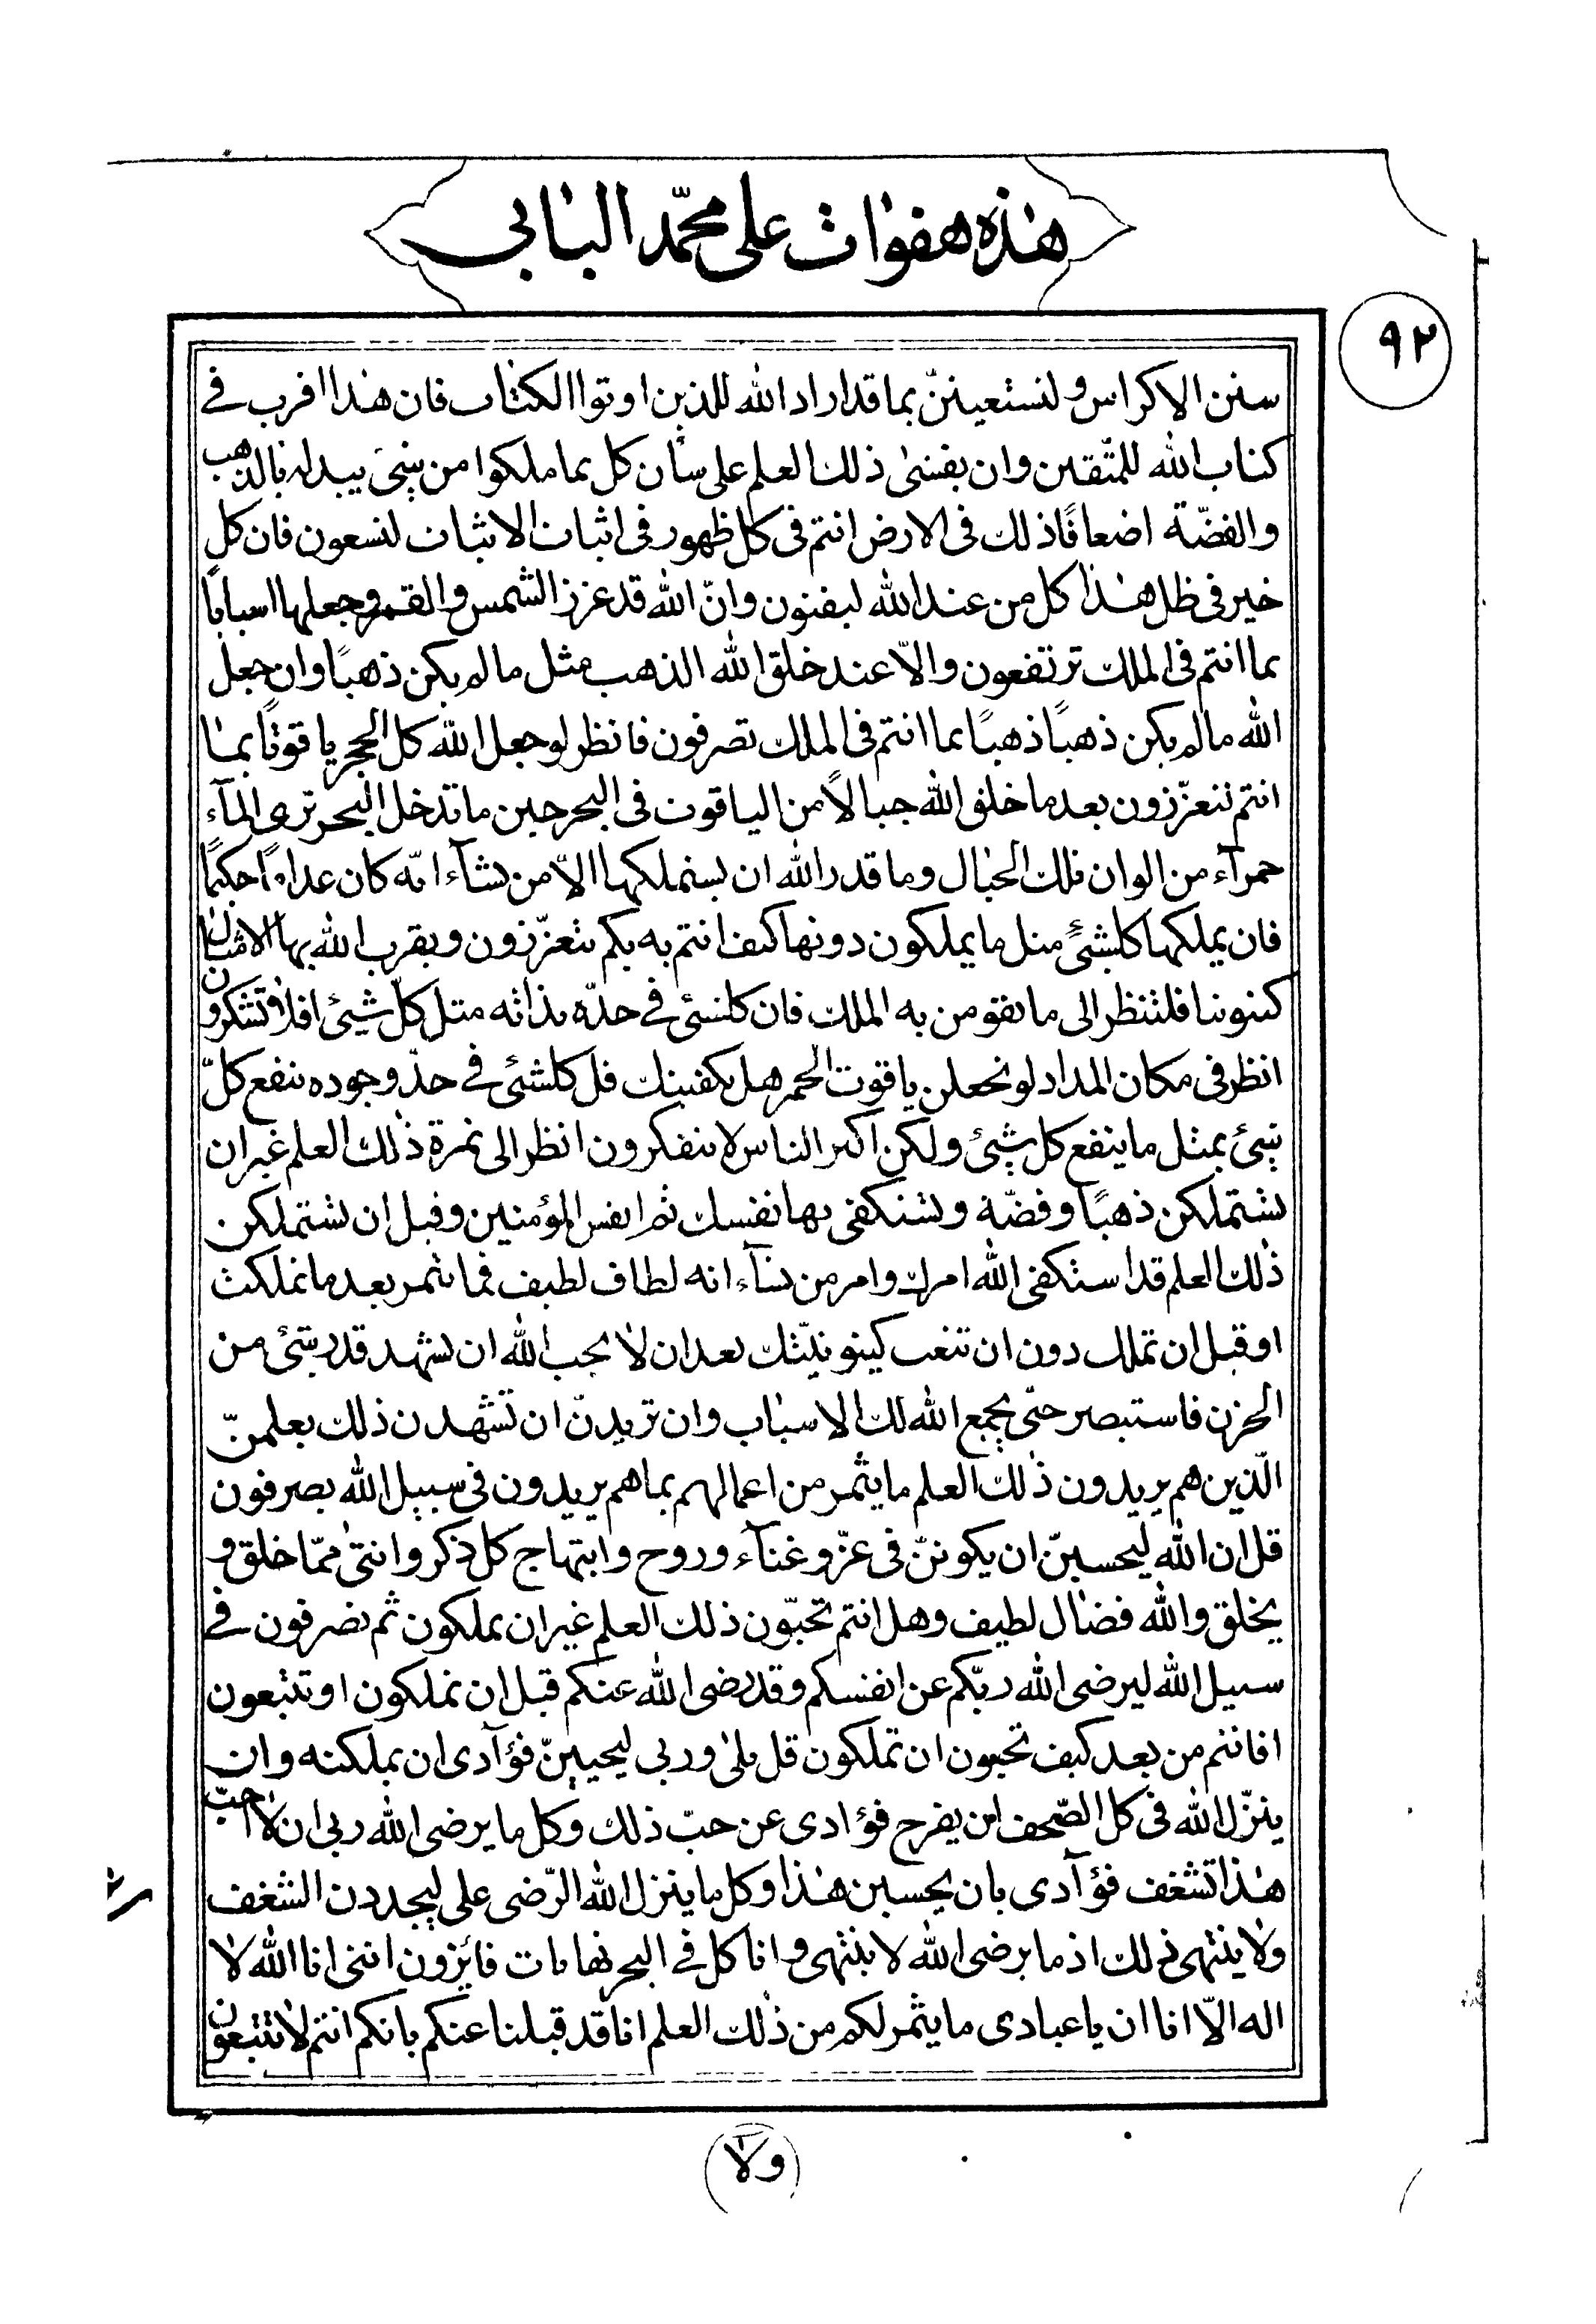 هذه هفوات على محمّد البابي
٩٢
سنن الاكراس ولنستعيننّ بما قد اراد الله للذين اوتوا الكتاب فان هذا اقرب في
كتاب الله للمتّقين وان يفنىٰ ذلك العلم على سأن كل بما ملكوا من شئ يبدله بالذهب
والفضّة اضعافًا ذلك في الارض انتم في كل ظهور في اثبات الاثبات لتسعون فان كل
خير في ظل هذا كل من عند الله ليفنون وانّ الله قد عزز الشمس والقمر وجعلها اسبابا
بما انتم في الملك ترتفعون والاّ عند خلق الله الذهب مثل ما لم يكن ذهبًا وان جعل
الله ما لم يكن ذهبًا ذهبًا بما انتم في الملك تصرفون فانظر لو جعل الله كل الحجر ياقوتًا بما
انتم تتعزّزون بعد ما خلق الله جبالاً من الياقوت في البحر حين ما تدخل البحر ترى المآء
حمرآء من الوان تلك الجبال وما قدر الله ان يستملكها الاّ من يشآء انّه كان علاما حكيما
فان يملكها كلشئ مثل ما يملكون دونها كيف انتم به بكم تتعزّزون ويقرب الله بها الامثال
كينونتا فلتنظر الى ما يقومن به الملك فان كلشئ في حدّه بذاته مثل كلّ شيئ افلا تشكرون
انظر في مكان المداد لو تجعلن ياقوت الحمر هل يكفينك قل كلشئ في حدّ وجوده ينفع كلّ
شئ بمثل ما ينفع كل شئ ولكن اكثر الناس لا يتفكرون انظر الى ثمرة ذلك العلم غير ان
تستملكن ذهبًا وفضّة وتستكفي بها نفسك ثم انفس المؤمنين وقبل ان تستملكن
ذلك العلم قد استكفى الله امرك وامر من يشآء انه لطاف لطيف فما يثمر بعد ما تملكت
او قبل ان تملك دون ان تتعب كينونيّتك بعد ان لا يحب الله ان يشهد قدر شئ من
الحزن فاستبصر حتّى يجمع الله لك الاسباب وان تريدنّ ان تشهدن ذلك بعلمنّ
الّذين هم يريدون ذلك العلم ما يثمر من اعمالهم بما هم يريدون في سبيل الله يصرفون
قل ان الله ليحسبنّ ان يكوننّ في عزّ وغنآء وروح وابتهاج كل ذكر وانثىٰ ممّا خلق و
يخلق والله فضال لطيف وهل انتم تحبّون ذلك العلم غير ان يملكون ثم تصرفون في
سبيل الله ليرضى الله ربّكم عن انفسكم وقد رضى الله عنكم قبل ان تملكون او تتبعون
افانتم من بعد كيف تحبون ان تملكون قل بلىٰ وربي ليحيبنّ فؤآدي ان يملكنه وان
ينزّل الله في كل الصّحف ان يفرح فؤادى عن حبّ ذلك وكل ما يرضى الله ربى ان لا احبّ
هذا تشغف فؤآدى بان يحسبن هذا وكل ما ينزل الله الرّضى على ليجددن الشغف
ولا ينتهى ذلك اذ ما يرضى الله لا ينتهى وانا كل في البحر نهايات فائزون اننى انا الله لا
اله الاّ انا ان يا عبادى ما يثمر لكم من ذلك العلم انا قد قبلنا عنكم بانكم انتم لا تتبعون
ولا